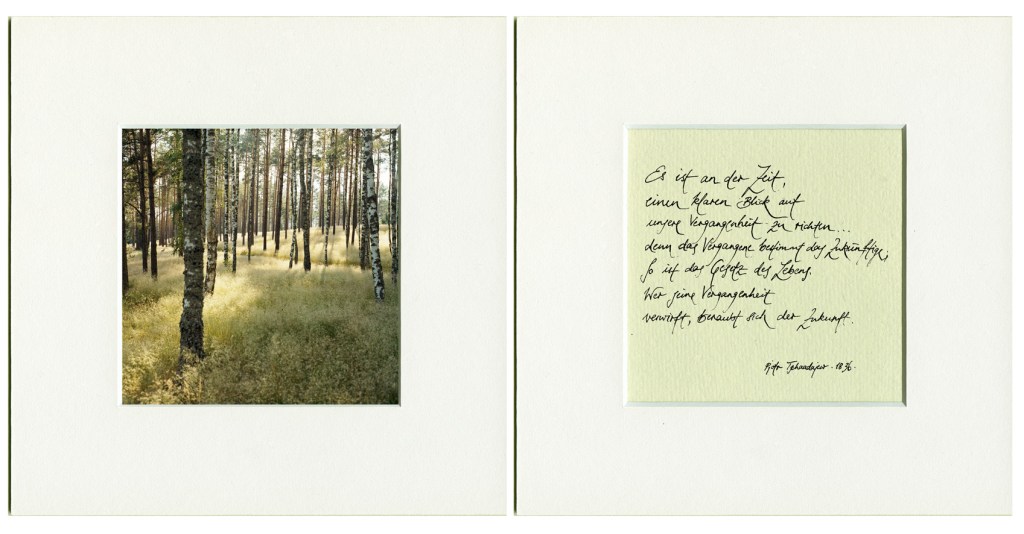 Es ist an der Zeit,
einen klaren Blick auf
unsere Vergangenheit zu richten...
denn das Vergangene bestimmt das Zukünftige,
so ist das Gesetz des Lebens.
Wer seine Vergangenheit
verwirft, beraubt sich der Zukunft.
Pjotr Tschaadajew · 1836 ·